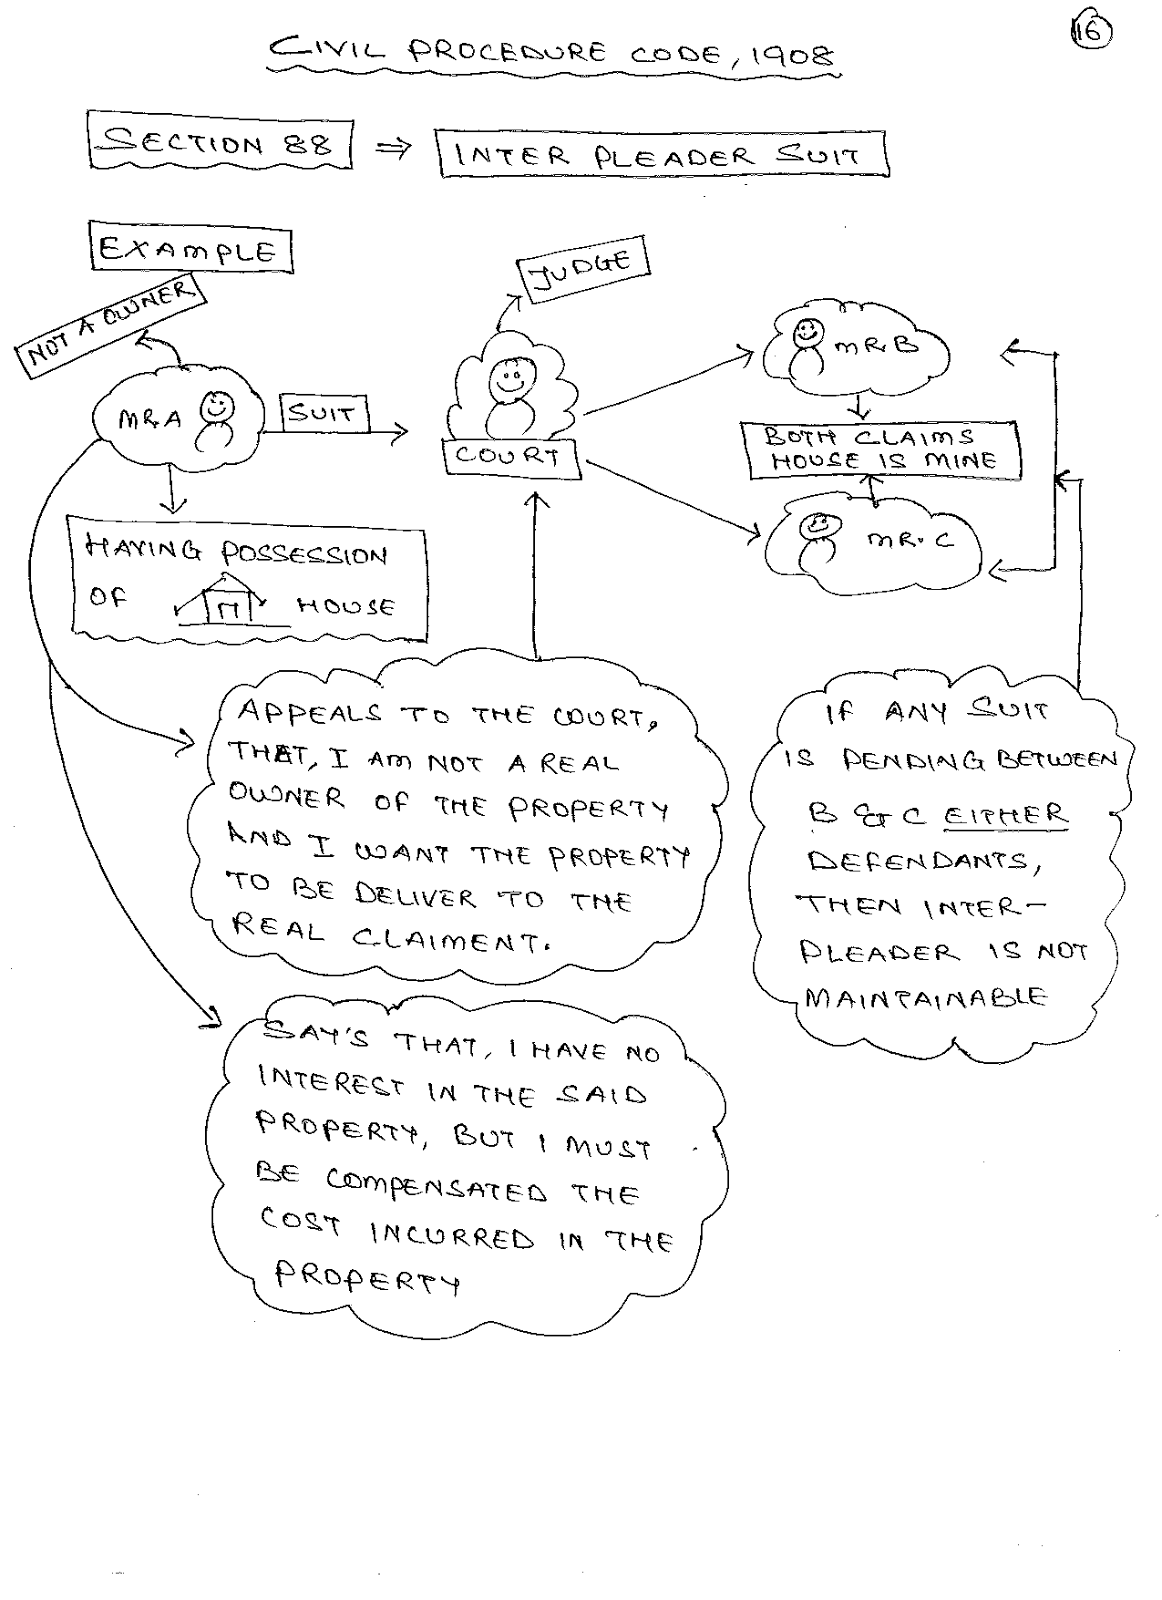 16
CIVIL PROCEDURE CODE, 1908
SECTION 88 ⇒ INTER PLEADER SUIT
EXAMPLE
NOT A OWNER
JUDGE
MR.A
SUIT
COURT
MR.B
BOTH CLAIMS
HOUSE IS MINE
MR.C
HAVING POSSESSION
OF HOUSE
APPEALS TO THE COURT,
THAT, I AM NOT A REAL
OWNER OF THE PROPERTY
AND I WANT THE PROPERTY
TO BE DELIVER TO THE
REAL CLAIMENT.
IF ANY SUIT
IS PENDING BETWEEN
B & C EITHER
DEFENDANTS,
THEN INTER-
PLEADER IS NOT
MAINTAINABLE
SAY'S THAT, I HAVE NO
INTEREST IN THE SAID
PROPERTY, BUT I MUST
BE COMPENSATED THE
COST INCURRED IN THE
PROPERTY